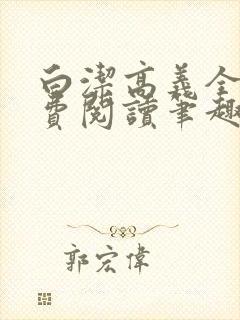 白潔高義全
費閱讀筆趣
郭宏偉